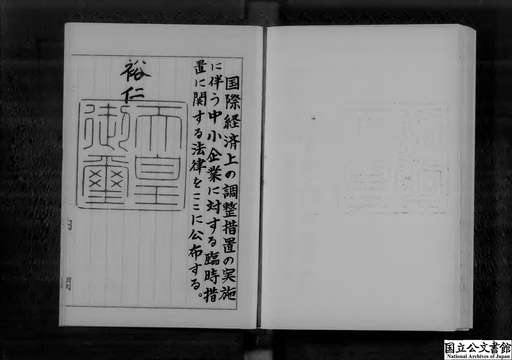 国際経済上の調整措置の実施
に伴う中小企業に対する臨時措
置に関する法律をここに公布する。
裕仁
天皇
御璽
国立公文書館
National Archives of Japan